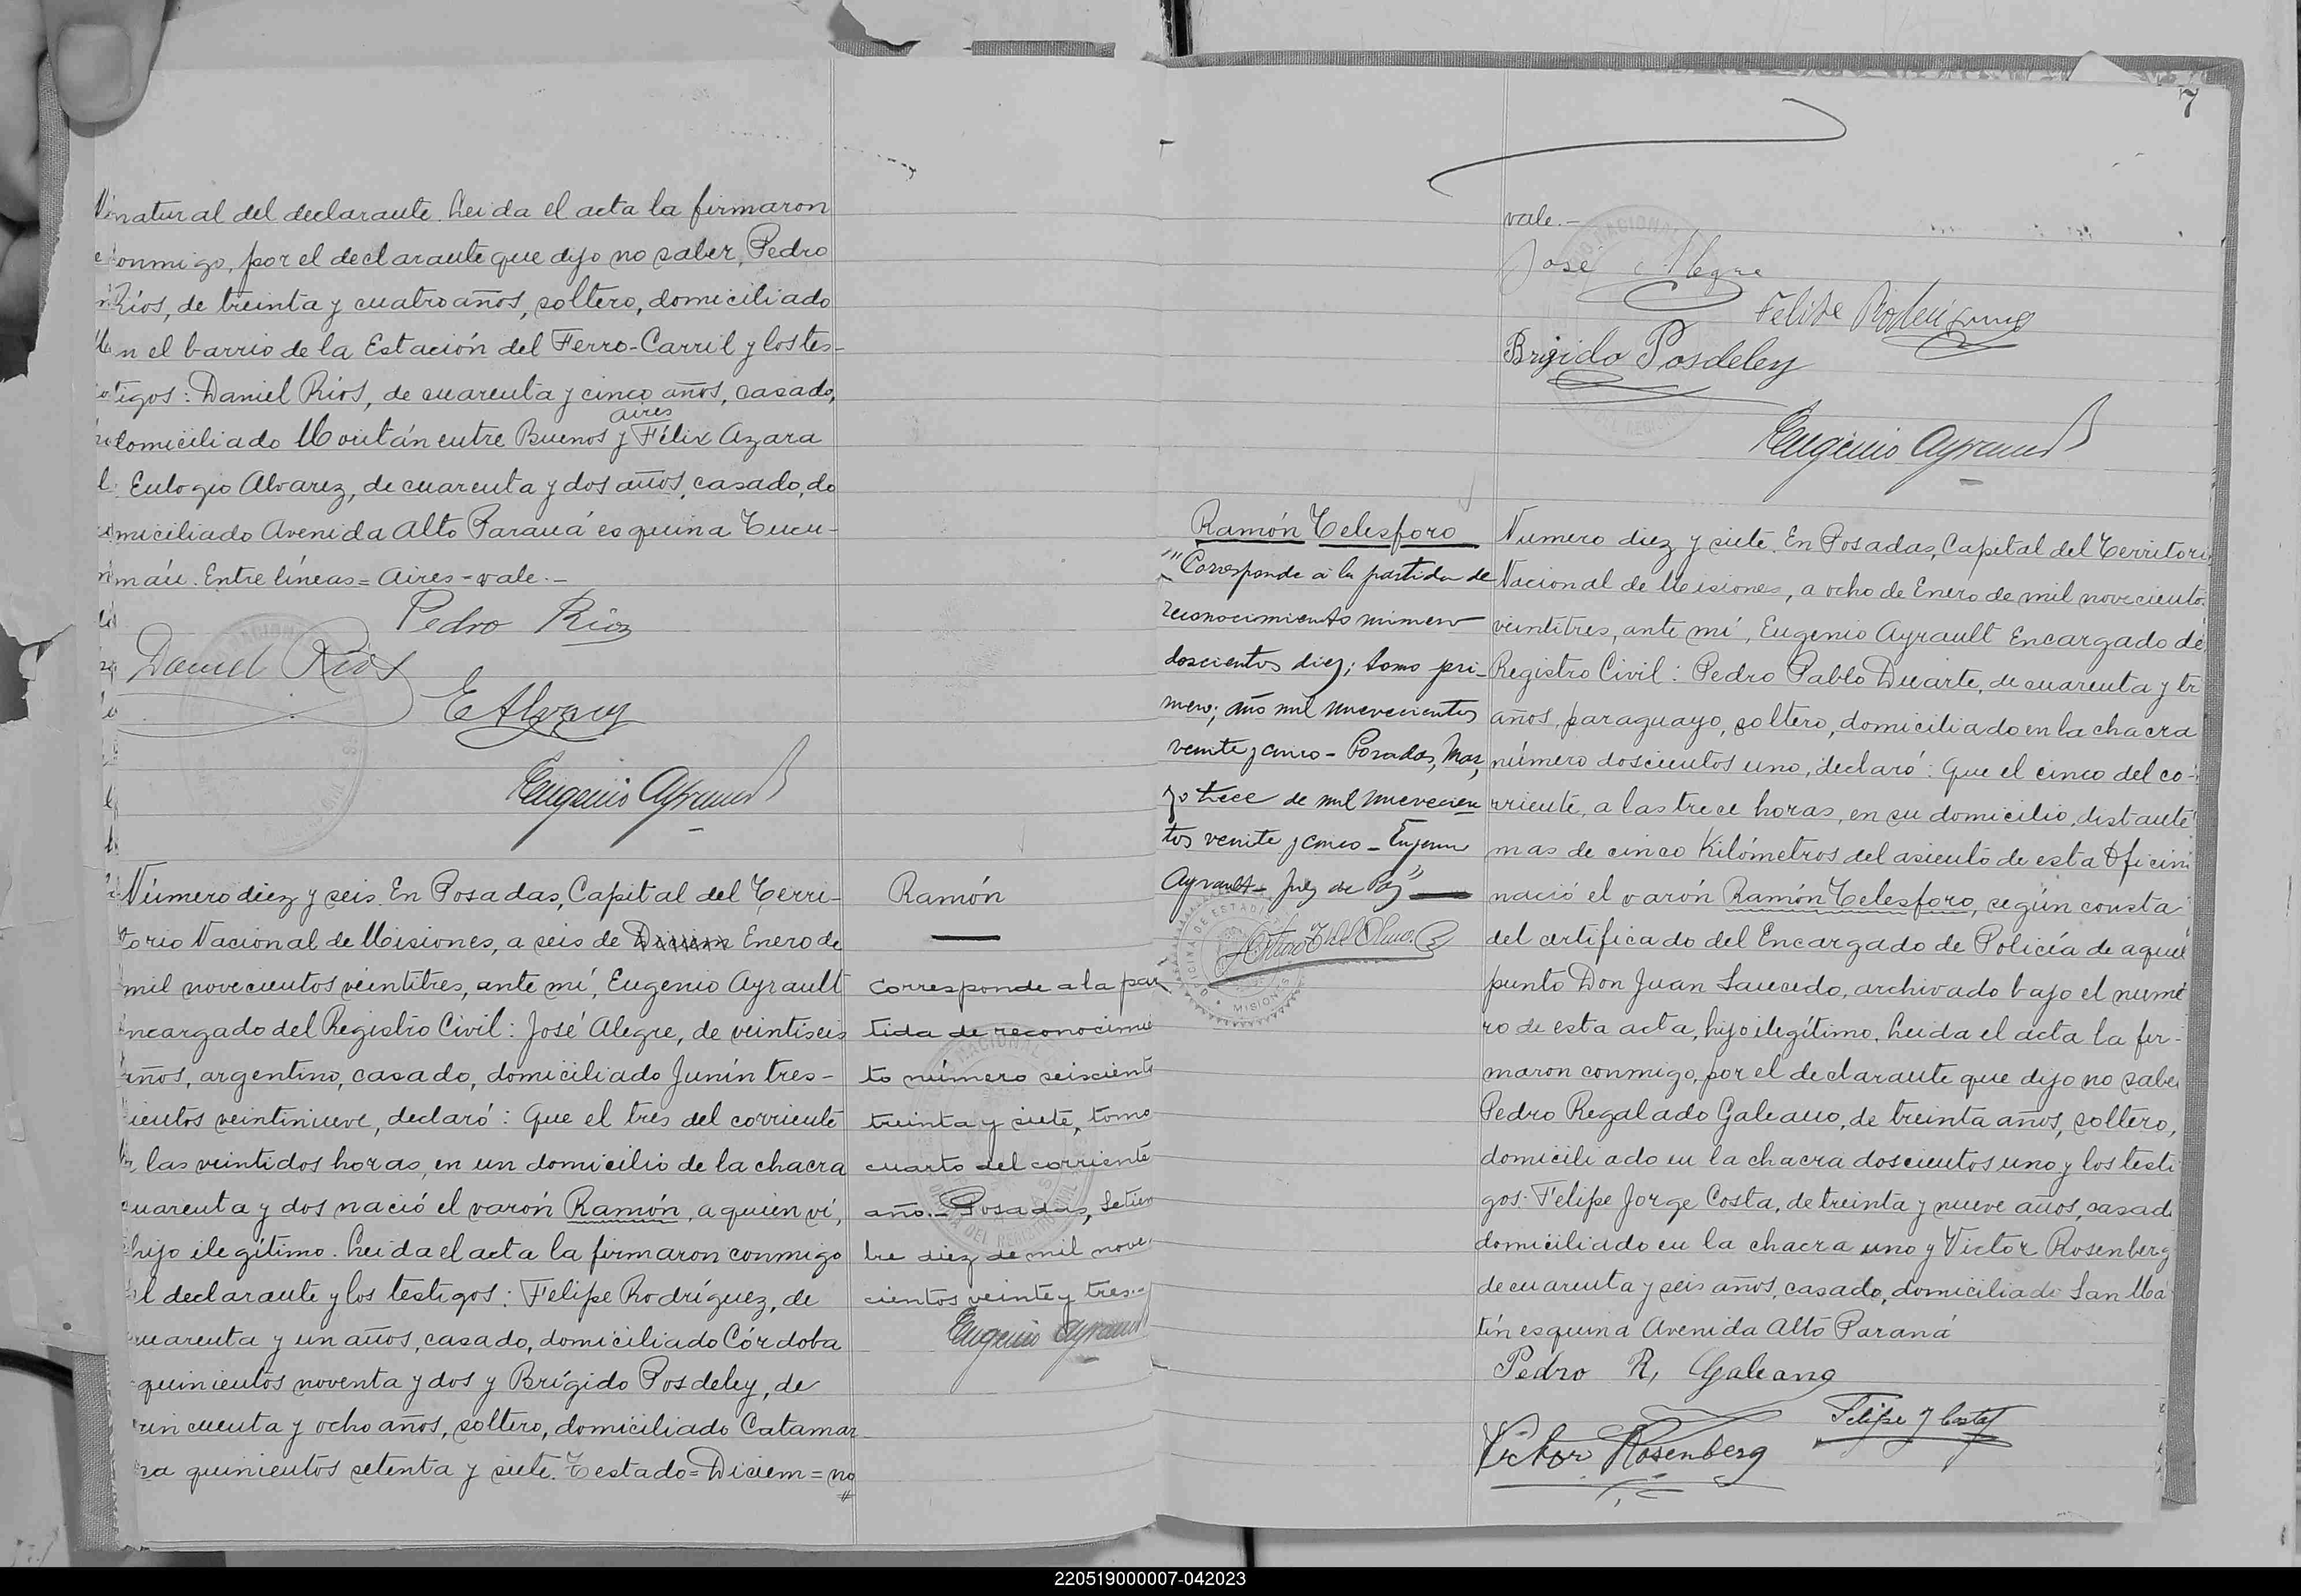 natural del declarante. Leida el acta la firmaron
conmigo, por el declarante que dijo no saber, Pedro
Ríos, de treinta y cuatro años, soltero, domiciliado
en el barrio de la Estación del Ferro-Carril y los tes-
tigos: Daniel Ríos, de cuarenta y cinco años, casado,
aires
domiciliado Moritán entre Buenos y Félix Azara
Eulogio Alvarez, de cuarenta y dos años, casado, do
miciliado Avenida Alto Paraná esquina Tucu-
mán. Entre líneas = Aires - vale.-
Pedro Rios
Daniel Rios
E Alvarez
Eugenio Ayrault
Número diez y seis. En Posadas, Capital del Terri-
torio Nacional de Misiones, a seis de Diciem Enero de
mil novecientos veintitres, ante mí, Eugenio Ayrault
Encargado del Registro Civil: José Alegre, de veintiseis
años, argentino, casado, domiciliado Junín tres-
cientos veintinueve, declaró: Que el tres del corriente
a las veintidos horas, en un domicilio de la chacra
cuarenta y dos nació el varón Ramón, a quien ví,
hijo ilegítimo. Leida el acta la firmaron conmigo
el declarante y los testigos: Felipe Rodríguez, de
cuarenta y un años, casado, domiciliado Córdoba
quinientos noventa y dos y Brígido Posdeley, de
cincuenta y ocho años, soltero, domiciliado Catamar
ca quinientos setenta y siete. Testado = Diciem = no
Ramón
Corresponde a la par
tida de reconocimie
to número seisciento
treinta y siete, tomo
cuarto del corriente
año.- Posadas, Setiem
bre diez de mil nove
cientos veinte y tres.-
Eugenio Ayrault
7
vale.-
José Alegre
Felipe Rodriguez
Brigido Posdeley
Eugenio Ayrault
Ramón Telesforo
"Corresponde a la partida de
reconocimiento número
doscientos diez; tomo pri-
mero; año mil novecientos
veinte y cinco - Posadas, Mar,
zo trece de mil novecien
tos veinte y cinco - Eugenio
Ayrault - Juez de Paz"
Numero diez y siete. En Posadas, Capital del Territorio
Nacional de Misiones, a ocho de Enero de mil novecientos
veintitres, ante mí, Eugenio Ayrault Encargado de
Registro Civil: Pedro Pablo Duarte, de cuarenta y tr
años, paraguayo, soltero, domiciliado en la chacra
número doscientos uno, declaró: Que el cinco del co-
rriente, a las trece horas, en su domicilio, distante
mas de cinco Kilómetros del asiento de esta Oficina
nació el varón Ramón Telesforo, según consta
del certificado del Encargado de Policía de aquel
punto Don Juan Saucedo, archivado bajo el núme
ro de esta acta, hijo ilegítimo. Leida el acta la fir-
maron conmigo, por el declarante que dijo no saber
Pedro Regalado Galeano, de treinta años, soltero,
domiciliado en la chacra doscientos uno y los testi
gos: Felipe Jorge Costa, de treinta y nueve años, casado
domiciliado en la chacra uno y Victor Rosenberg
de cuarenta y seis años, casado, domiciliado San Ma
tín esquina Avenida Alto Paraná
Pedro R, Galeano
Felipe J Costa
Victor Rosenberg
220519000007-042023